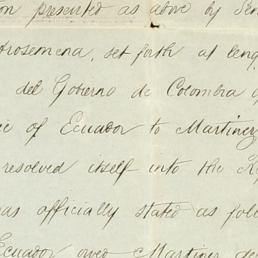 on presented as above by Sen
Arosemena, set forth at leng
del Gobierno de Colombia
of Ecuador to Martinez
resolved itself into the
as officially stated as fol
Ecuador owed Martinez de